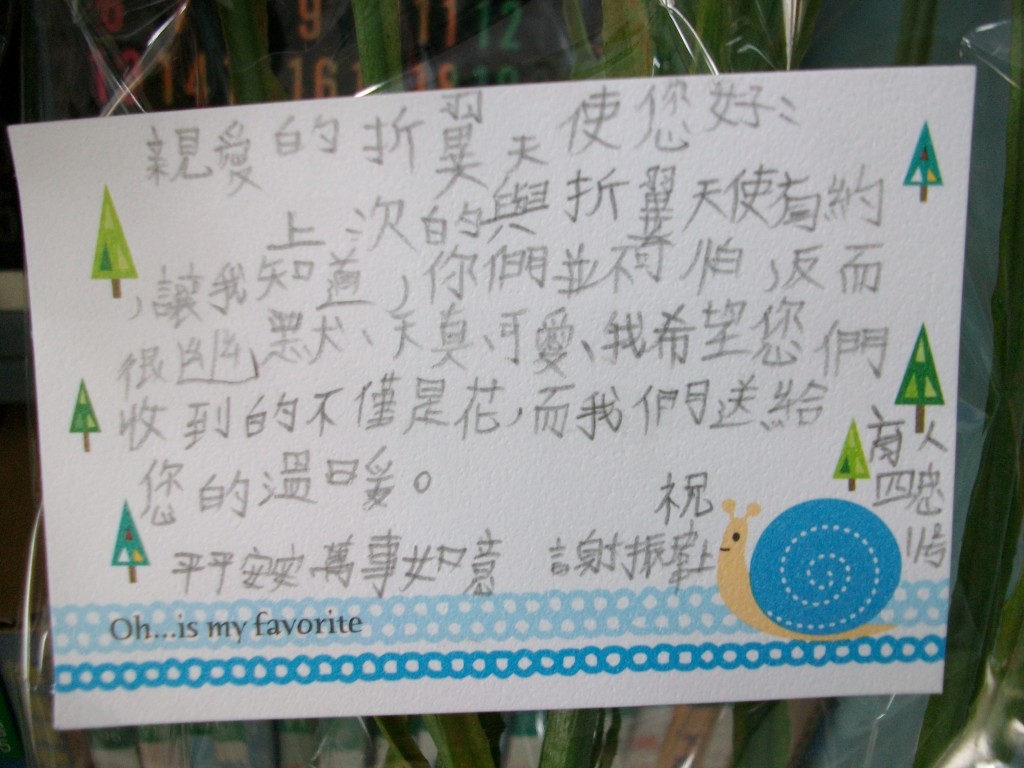 8 7 9 11 12
13 14 16 18 19
親愛的折翼天使您好:
上次的與折翼天使有約
,讓我知道,你們並不可怕,反而
很幽默、天真、可愛、我希望您們
收到的不僅是花,而我們送給
您的溫暖。
祝
平平安安萬事如意 謝振 上
商人
四忠
11号
Oh...is my favorite